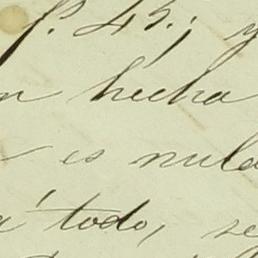 f. 45.; y
n hecha
es nula
á todo, se